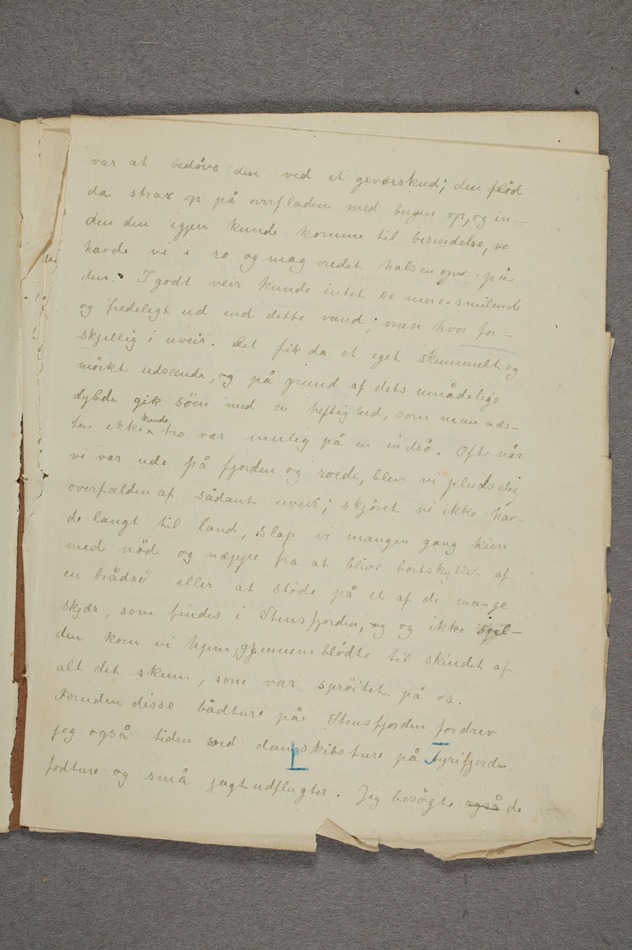 var at bedöve den ved et geværskud; den flöd
da strax op på overfladen med bugen op, og in-
den den igjen kunde komme til besindelse, 
havde vi i ro og mag vredet halsen om på
den. I godt veir kunde intet se mere smilende
og fredeligt ud end dette vand; men hvor for-
skjellig i uveir. Det fik da et eget skummelt og
mörkt udseende, og på grund af dets umådelige
dybde gik söen med en heftighed, som man næs-
ten ikke kunde tro var mulig på en indsö. Ofte når
vi var ude på fjorden og roede, blev vi pludselig
overfalden af sådant uveir; skjönt vi ikke hav-
de langt til land, slap vi mangen gang kun
med nöd og næppe fra at blive bortskyllet af
en brådsö eller at stöde på et af de mange
skjær, som findes i Stensfjorden, og og ikke sjel-
den kom vi hjem, gjennemblödte til skindet af
alt det skum, som var spröitet på os.
Foruden disse bådture på Stensfjorden fordrev
jeg også tiden med dampskibsture på Tyrifjorden,
fodture og små jagtudflugter. Jeg besögte også de